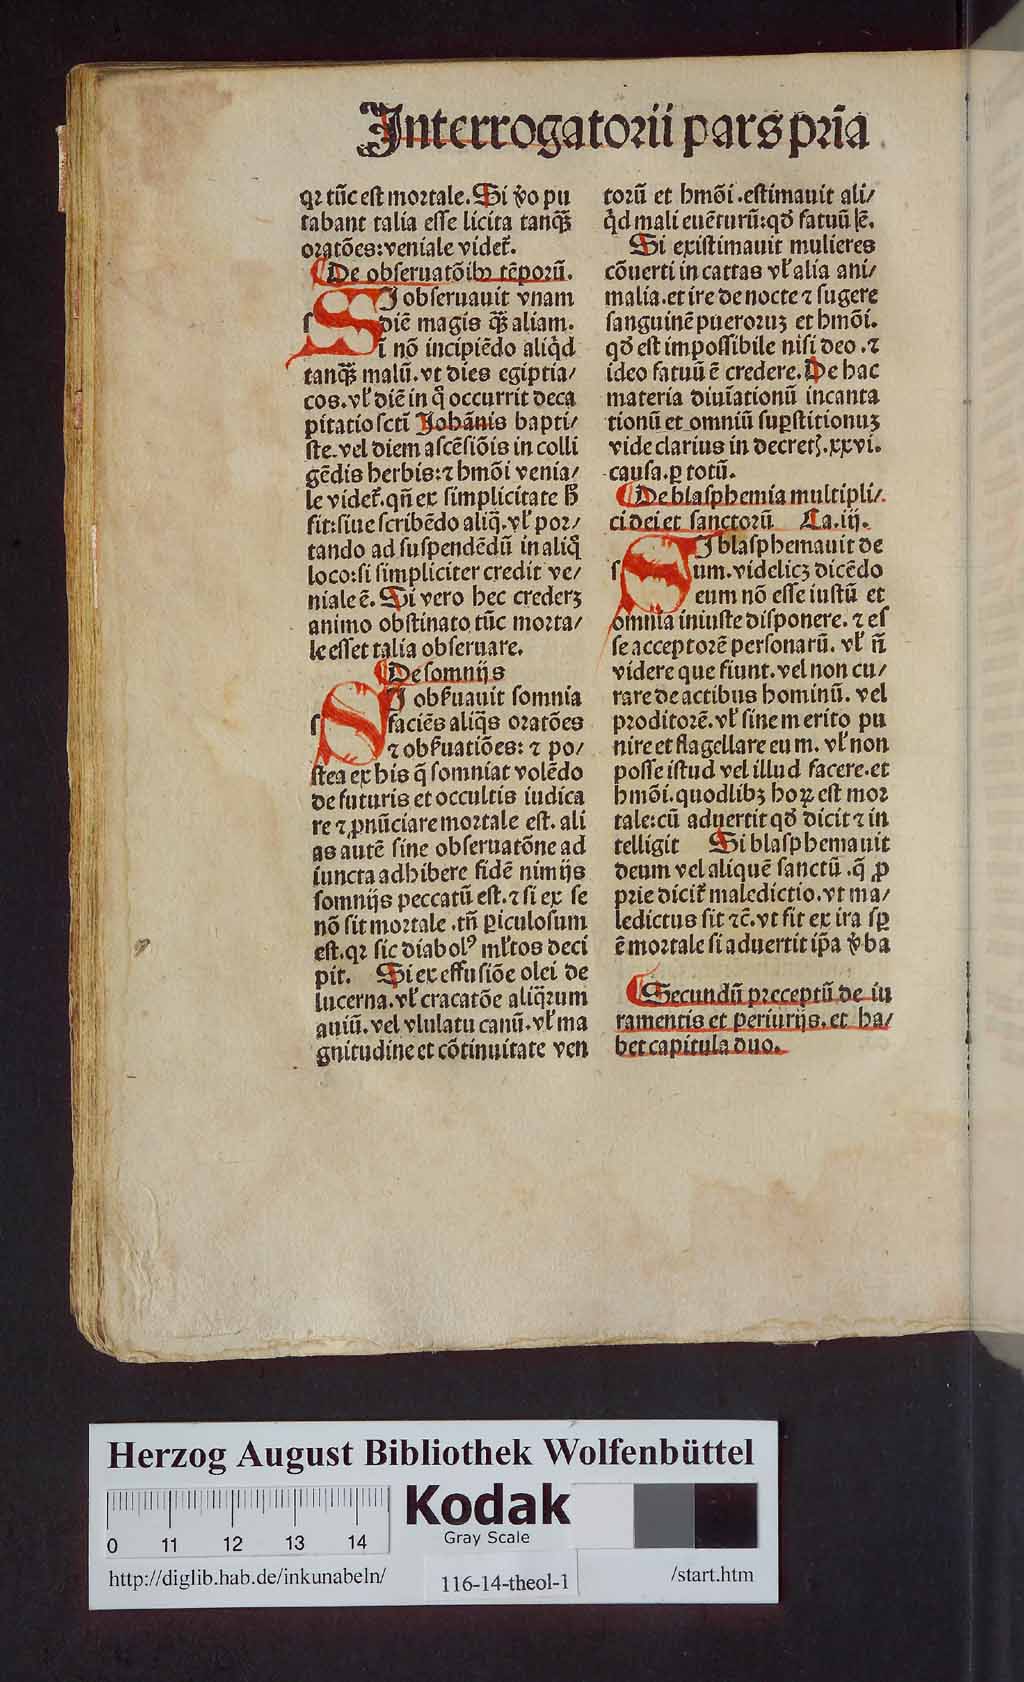 Interrogatorii pars prīa
qꝛ tūc est mortale. Si v̄o pu
tabant talia esse licita tanqȝ̄
oratōes: veniale videt᷑.
¶ De obseruatōibꝰ tēporū.
SI obseruauit vnam
diē magis qȝ̄ aliam.
ī nō incipiēdo aliq̇d
tanqȝ̄ malū. vt dies egiptia/
cos. vl̓ diē in q̄ occurrit deca
pitatio scti̅ Johānis bapti/
ste. vel diem ascēsiōis in colli
gēdis herbis: ⁊ hmōi venia/
le videt᷑. qn̄ ex simplicitate h̄
fit: siue scribēdo aliq̄. vl̓ por/
tando ad suspendēdū in aliq̄
loco: si simpliciter credit ve/
niale ē. Si vero hec crederȝ
animo obstinato tūc morta/
le esset talia obseruare.
¶ De somnijs
SI obẜuauit somnia
faciēs aliq̄s oratōes
⁊ obẜuatiōes: ⁊ po/
stea ex his q̄ somniat volēdo
de futuris et occultis iudica
re ⁊ ꝓnūciare mortale est. ali
as autē sine obseruatōne ad
iuncta adhibere fidē nimijs
somnijs peccatū est. ⁊ si ex se
nō sit mortale. tn̄ ꝑiculosum
est. qꝛ sic diabolꝰ ml̓tos deci
pit. Si ex effusiōe olei de
lucerna. vl̓ cracatōe aliq̄rum
auiū. vel vlulatu canū. vl̓ ma
gnitudine et cōtinuitate ven
torū et hmōi. estimauit ali/
q̇d mali euēturū: qḋ fatuū ē.
Si existimauit mulieres
cōuerti in cattas vl̓ alia ani/
malia. et ire de nocte ⁊ sugere
sanguinē pueroruȝ et hmōi.
qḋ est impossibile nisi deo. ⁊
ideo fatuū ē credere. De hac
materia diuīationū incanta
tionū et omniū suꝑstitionuȝ
vide clarius in decret᷑. xxvi.
causa. ꝑ totū.
¶ De blasphemia multipli/
ci dei et sanctorū Ca. iij.
SI blasphemauit de
um. videlicȝ dicēdo
eum nō esse iustū et
omnia iniuste disponere. ⁊ es
se acceptorē personarū. vl̓ n̄
videre que fiunt. vel non cu/
rare de actibus hominū. vel
proditorē. vl̓ sine merito pu
nire et flagellare eum. vl̓ non
posse istud vel illud facere. et
hmōi. quodlibȝ hoꝝ est mor
tale: cū aduertit qḋ dicit ⁊ in
telligit Si blasphemauit
deum vel aliquē sanctū. q̄ ꝓ
prie dicit᷑ maledictio. vt ma/
ledictus sit ⁊c̄. vt fit ex ira sꝑ
ē mortale si aduertit ip̄a v̄ba
¶ Secundū preceptū de iu
ramentis et periurijs. et ha/
bet capitula duo.
Herzog August Bibliothek Wolfenbüttel
0 11 12 13 14
Kodak
Gray Scale
http://diglib.hab.de/inkunabeln/
116-14-theol-1
/start.htm